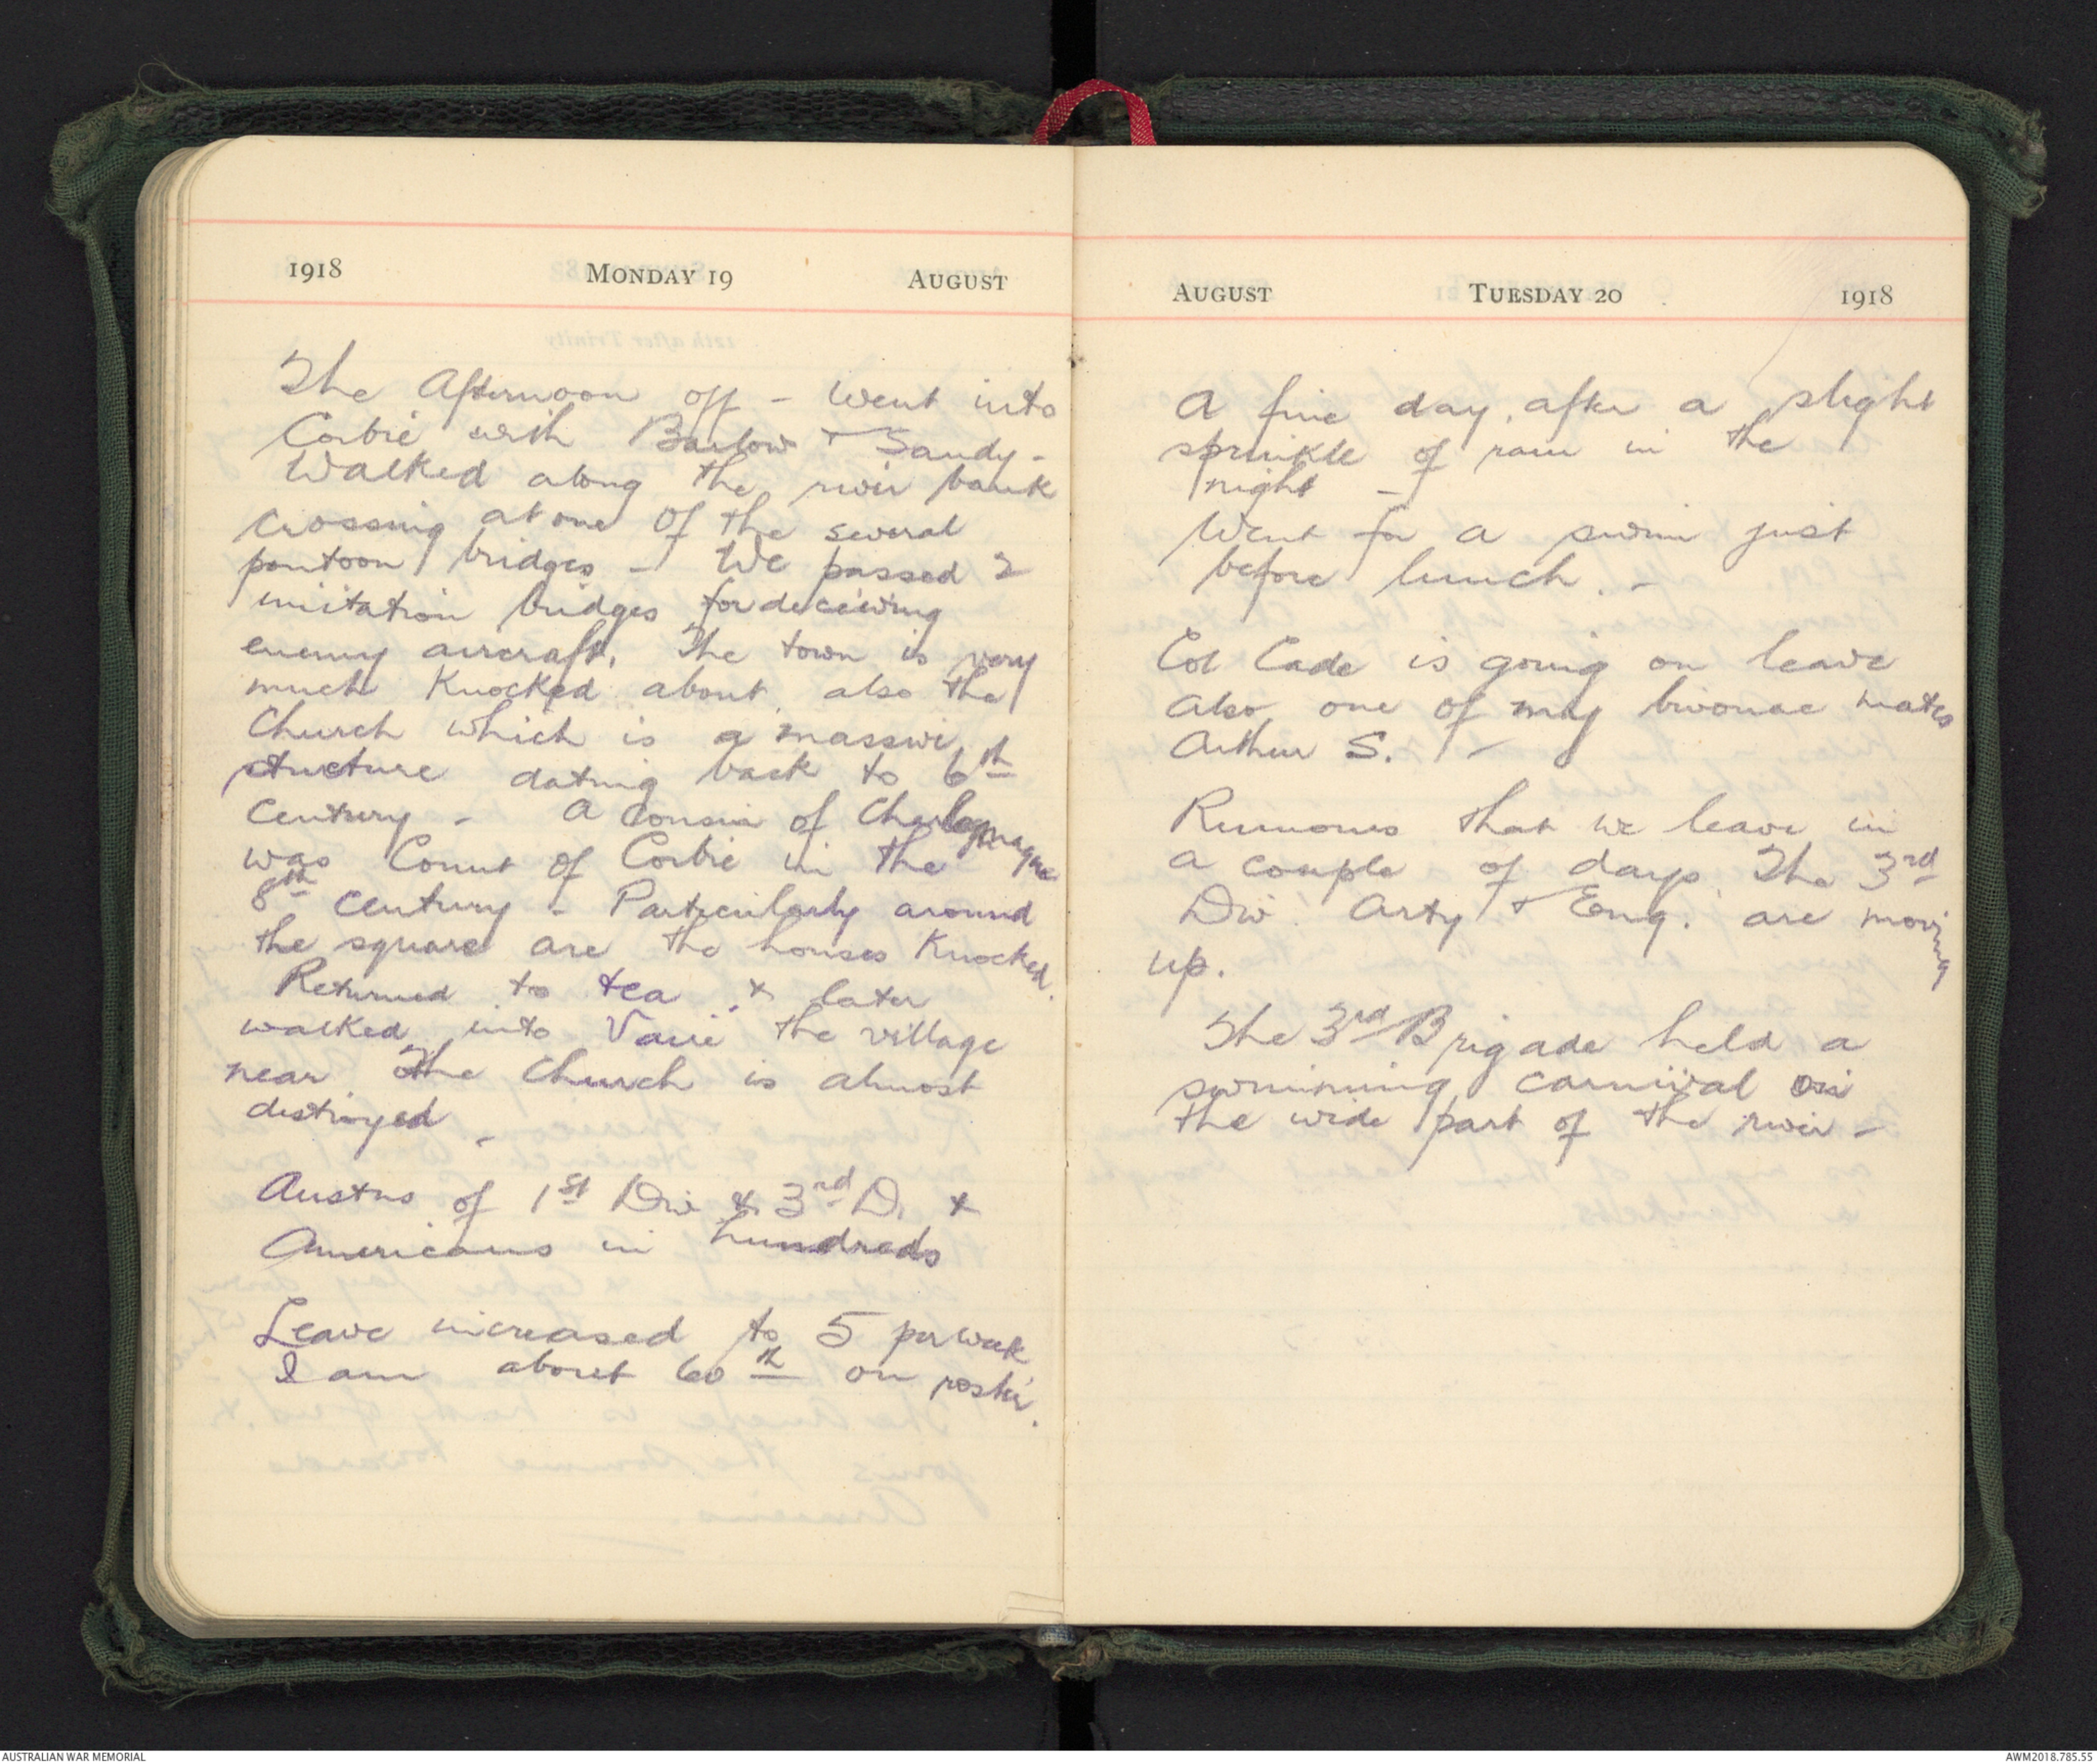 1918 MONDAY 19 AUGUST
The Afternoon off - Went into
Corbie with Barlow + Sandy -
Walked along the river bank
crossing at one of the several
pontoon bridges - We passed 2
imitation bridges for deceiving
enemy aircraft. The town is very
much Knocked about, also the
Church which is a massive
structure dating back to 6th
Century - A cousin of Charlemagne
was Count of Corbie in the
8th Century - Particularly around
the square are the houses Knocked.
Returned to tea & later
walked into Vaire the village
near. The Church is almost
destroyed -
Austns of 1st Div & 3rd D. &
Americans in hundreds
Leave increased to 5 per week
I am about 60th on roster.
AUGUST TUESDAY 20 1918
A fine day, after a slight
sprinkle of rain in the
night -
Went for a swim just
before lunch. -
Col Cade is going on leave
also one of my bivouac mates
Arthur S. -
Rumours that we leave in
a couple of days. The 3rd
Div. Arty + Eng. are moving
up.
The 3rd Brigade held a
swimming carnival on
the wide part of the river -
AUSTRALIAN WAR MEMORIAL
AWM2018.785.55